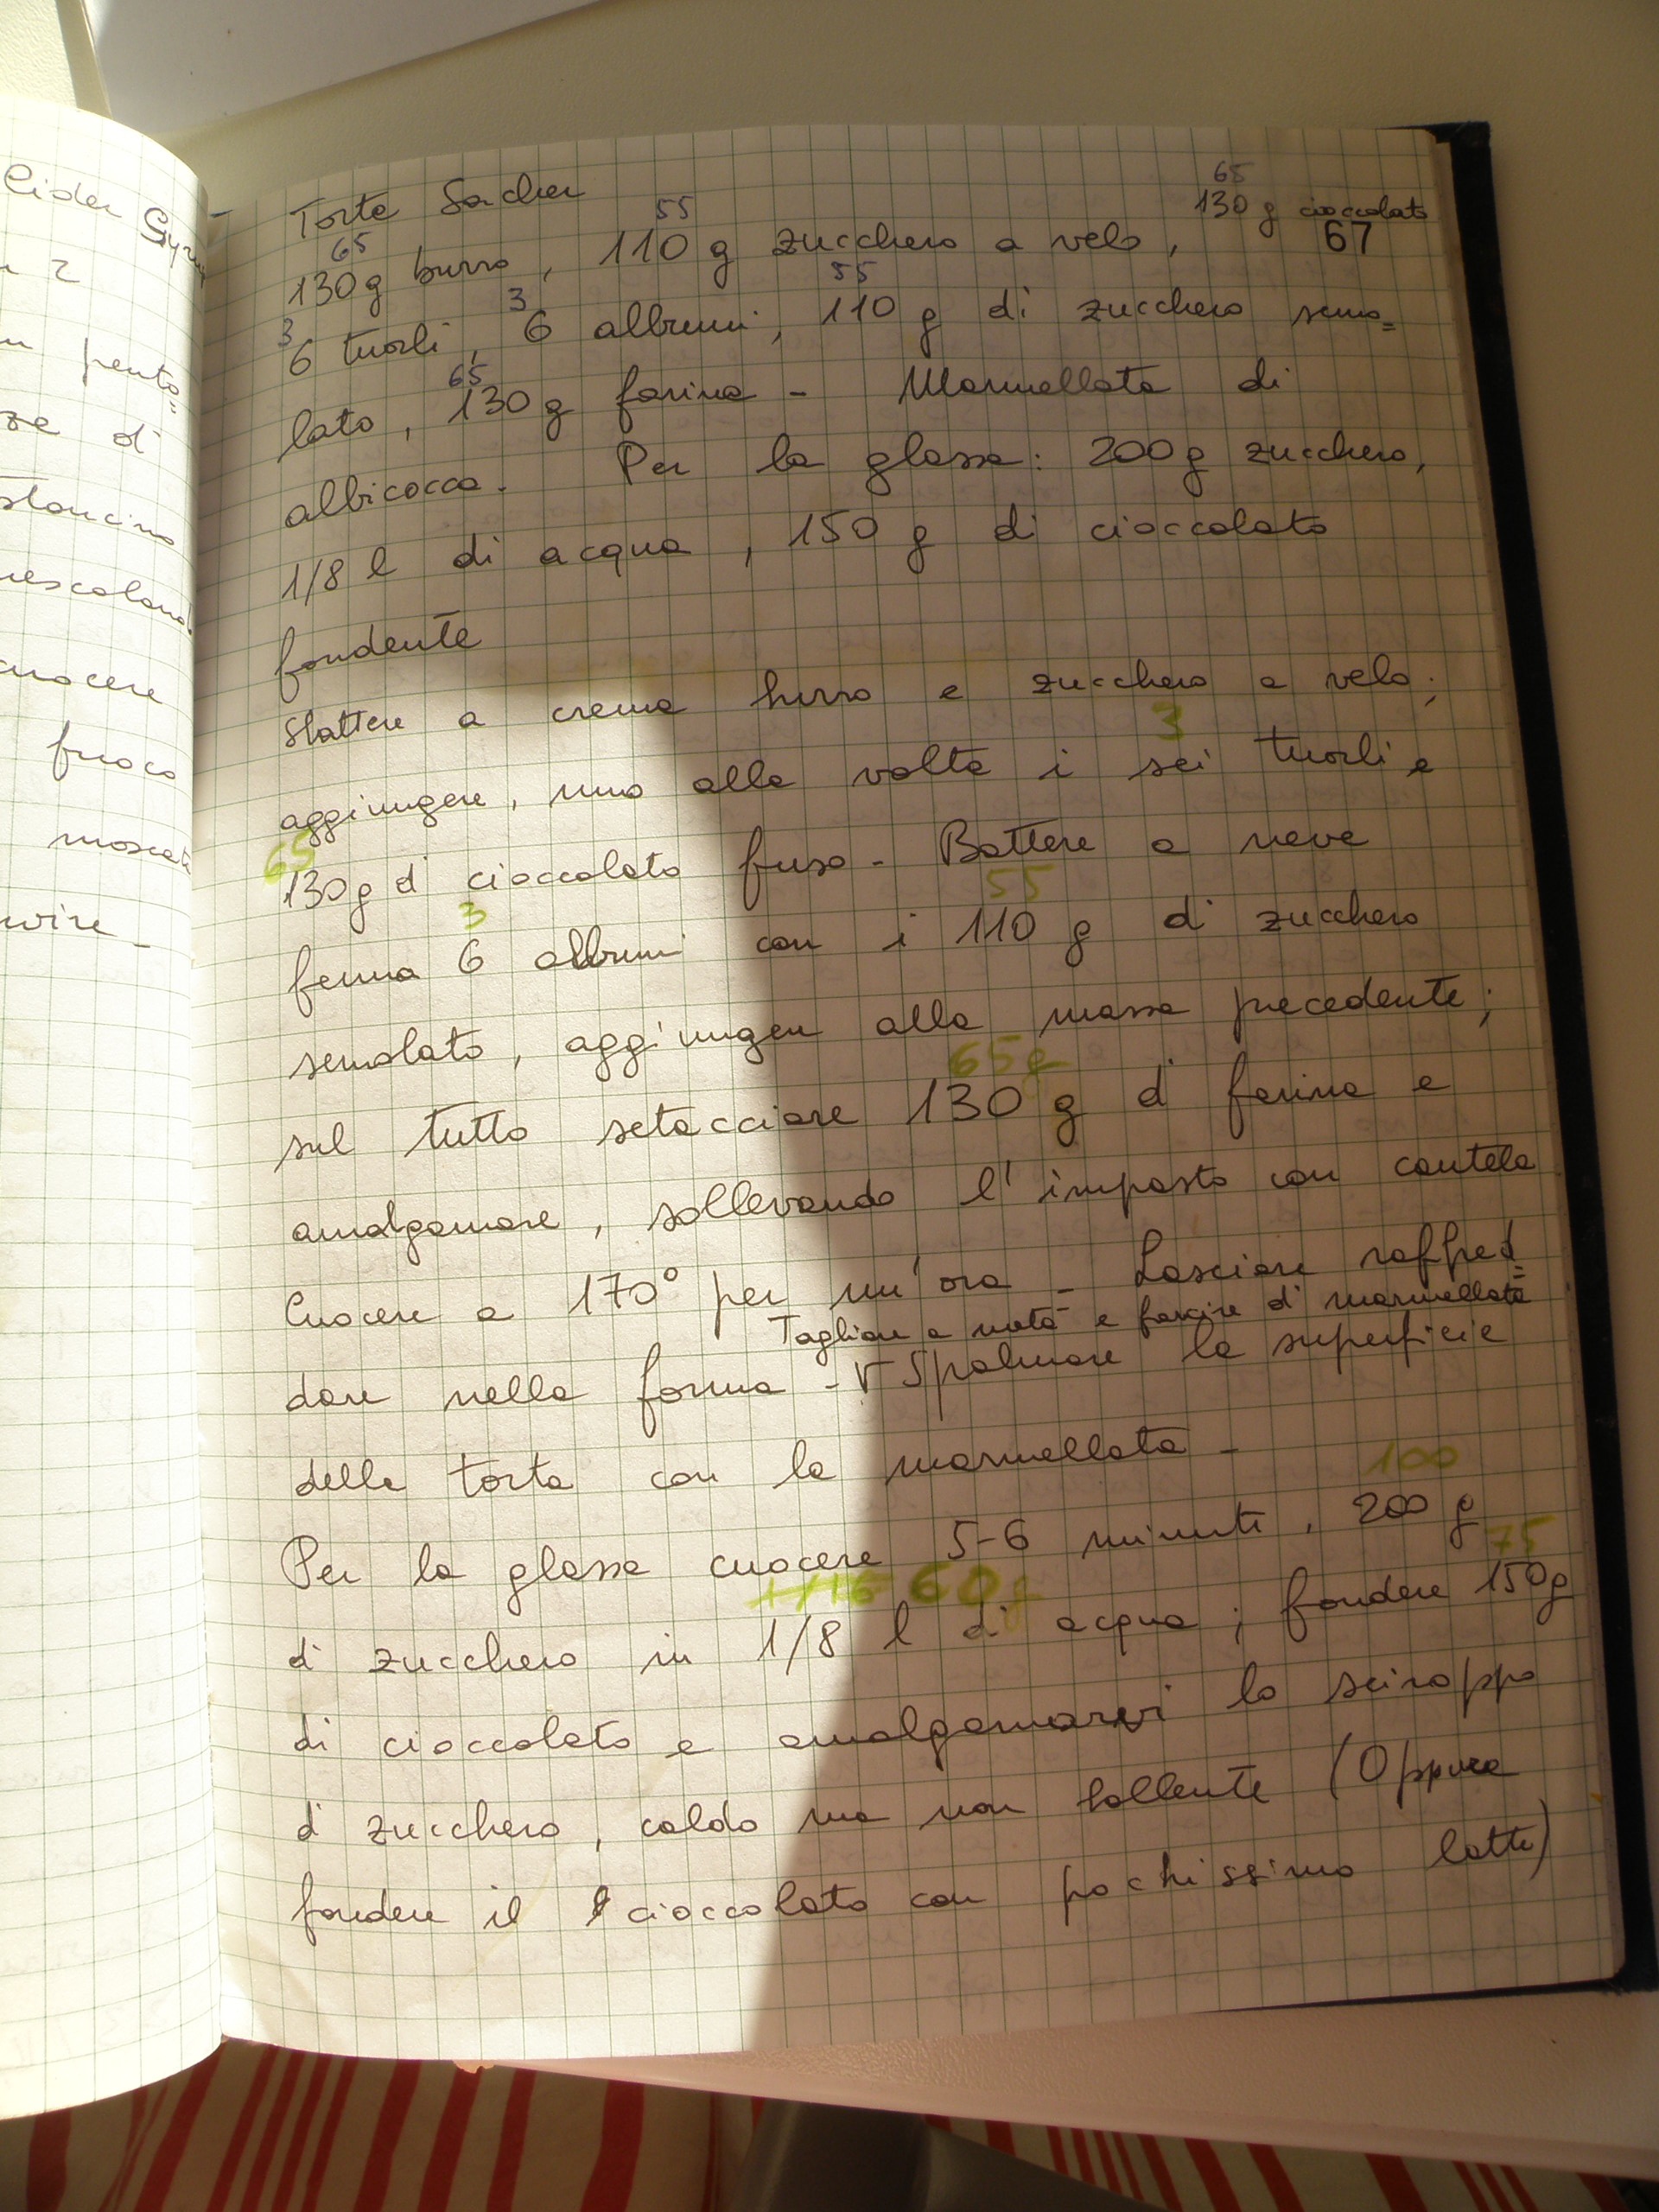 Cider Gyn
2
pento=
ze di
stoncino
mescolando
cuocere
fuoco
moscata
vire -
Torta Sacher
65 55 65
130 g cioccolato
130g burro, 110 g zucchero a velo, 67
3 3 55
6 tuorli, 6 albumi, 110 g di zucchero semo=
65
lato, 130 g farina - Marmellata di
albicocca. Per la glassa: 200 g zucchero,
1/8 l di acqua, 150 g di cioccolato
fondente
Sbattere a crema burro e zucchero a velo;
3
aggiungere, uno alla volta i sei tuorli e
65
130g di cioccolato fuso - Battere a neve
3 55
ferma 6 albumi con i 110 g di zucchero
semolato, aggiungere alla massa precedente;
65g
sul tutto setacciare 130 g di farina e
amalgamare, sollevando l'impasto con cautela
Cuocere a 170° per un'ora - Lasciare raffred=
Tagliare a metà e farcire di marmellata
dare nella forma - V Spalmare la superficie
della torta con la marmellata -
100
Per la glassa cuocere 5-6 minuti, 200 g
1/16 60g 75
di zucchero in 1/8 l di acqua; fondere 150g
di cioccolato e amalgamarvi lo sciroppo
di zucchero, caldo ma non bollente (Oppure
fondere il cioccolato con pochissimo latte)